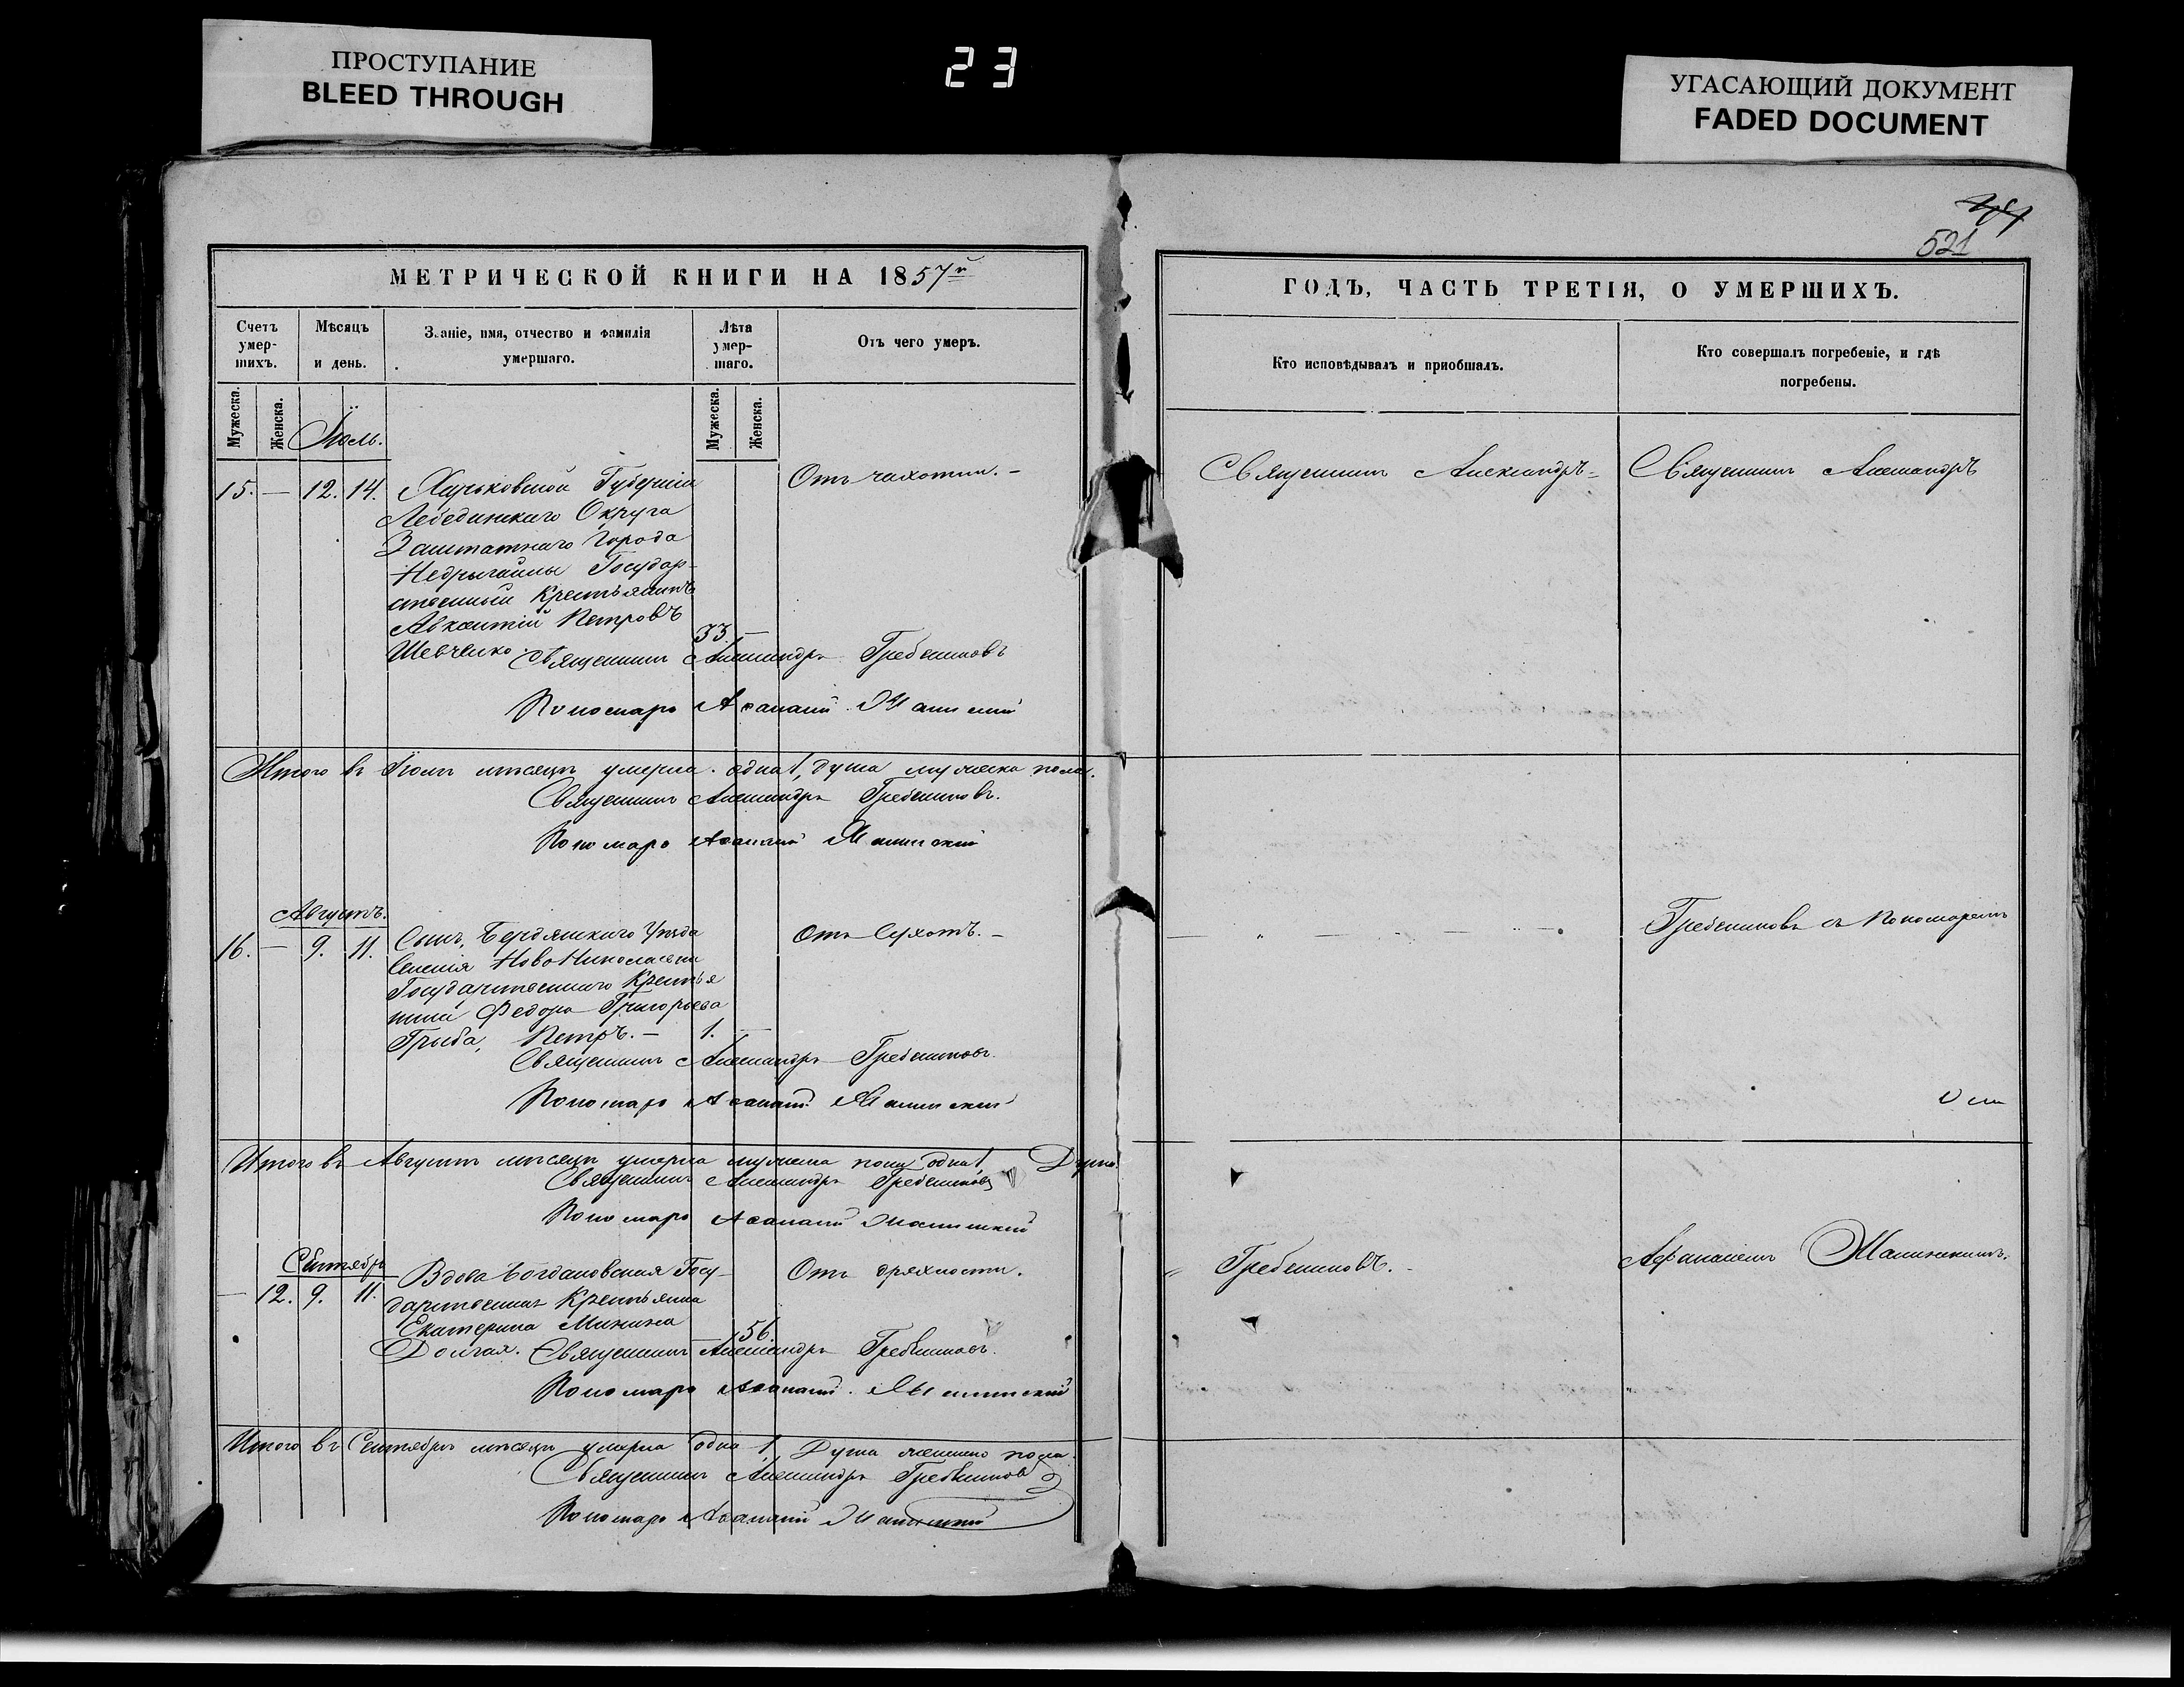 ПРОСТУПАНИЕ
BLEED THROUGH
23
УГАСАЮЩИЙ ДОКУМЕНТ
FADED DOCUMENT
521
МЕТРИЧЕСКОЙ КНИГИ НА 1857й
Счетъ умер-шихъ.
Мѣсяцъ и день.
Званіе, имя, отчество и фамилія умершаго.
Лѣта умер-шаго.
Отъ чего умеръ.
Мужеска.
Женска.
Мужеска.
Женска.
Іюль.
15. — 12. 14. Харьковской Губерніи Отъ чахотки. —
Лебединскаго Округа
Заштатнаго Города
Недрыгайлы Государ-
ственный Крестьянинъ
Авксентій Петровъ 33. —
Шевченко. Священникъ Александръ Гребенниковъ
Пономарь Афанасій Малинскій
Итого въ Іюлѣ мѣсяцѣ умерла одна 1, душа мужеска пола.
Священникъ Александръ Гребенниковъ.
Пономарь Афанасій Малинскій
Августъ.
16. — 9. 11. Сынъ, Бердянскаго Уѣзда Отъ Сухотъ. —
Селенія Ново Николаевки
Государственнаго Крестья
нина Федора Григорьева
Грыба, Петръ. — 1. —
Священникъ Александръ Гребенниковъ.
Пономарь Афанасій Малинскій
Итого въ Августѣ мѣсяцѣ умерла мужеска полу одна 1, Душа.
Священникъ Александръ Гребенниковъ
Пономарь Афанасій Малинскій
Сентябрь
— 12. 9. 11. Вдова Богдановская Госу- Отъ дряхлости.
дарственная Крестьянка
Екатерина Минина — 56.
Долгая. Священникъ Александръ Гребенниковъ.
Пономарь Афанасій Малинскій
Итого въ Сентябрѣ мѣсяцѣ умерла одна 1, Душа женскаго пола
Священникъ Александръ Гребенниковъ
Пономарь Афанасій Малинскій
ГОДЪ, ЧАСТЬ ТРЕТІЯ, О УМЕРШИХЪ.
Кто исповѣдывалъ и пріобщалъ.
Кто совершалъ погребеніе, и гдѣ погребены.
Священникъ Александръ
Священникъ Александръ
Гребенниковъ съ Пономаремъ
Гребенниковъ.
Афанасіемъ Малинскимъ.